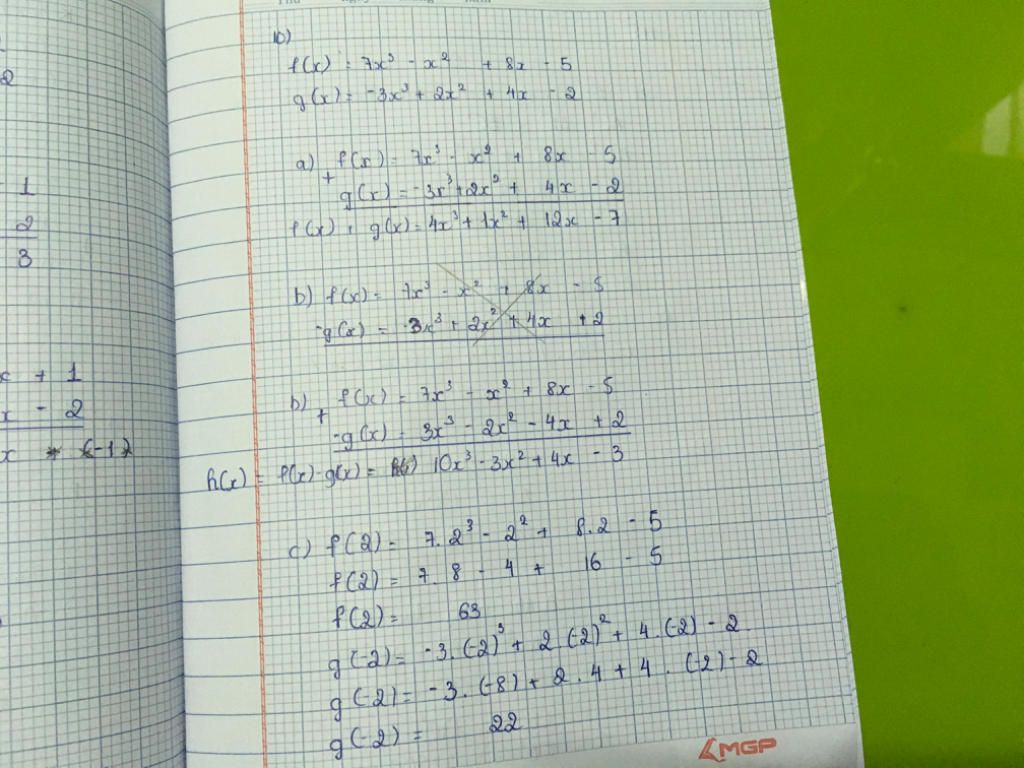 2
1
2
3
x + 1
x - 2
x (-1)
10)
f(x) = 7x³ - x² + 8x - 5
g(x) = -3x³ + 2x² + 4x - 2
a) + f(x) = 7x³ - x² + 8x - 5
g(x) = -3x³ + 2x² + 4x - 2
f(x) + g(x) = 4x³ + 1x² + 12x - 7
b) f(x) = 7x³ - x² + 8x - 5
-g(x) = -3x³ + 2x² + 4x + 2
b) + f(x) = 7x³ - x² + 8x - 5
-g(x) = 3x³ - 2x² - 4x + 2
h(x) = f(x) - g(x) = 10x³ - 3x² + 4x - 3
c) f(2) = 7.2³ - 2² + 8.2 - 5
f(2) = 7.8 - 4 + 16 - 5
f(2) = 63
g(-2) = -3.(-2)³ + 2(-2)² + 4.(-2) - 2
g(-2) = -3.(-8) + 2.4 + 4.(-2) - 2
g(-2) = 22
MGP